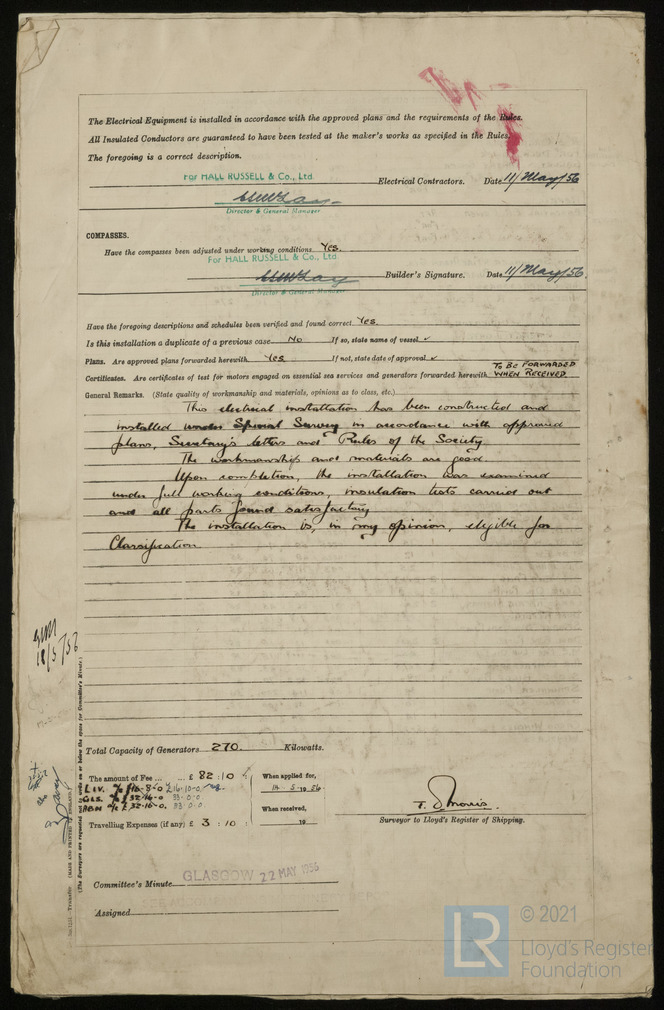 The Electrical Equipment is installed in accordance with the approved plans and the requirements of the Rules.
All Insulated Conductors are guaranteed to have been tested at the maker's works as specified in the Rules.
The foregoing is a correct description.
For HALL RUSSELL & Co., Ltd.
Electrical Contractors. Date 11/May/56
Director & General Manager
COMPASSES.
Have the compasses been adjusted under working conditions Yes.
For HALL RUSSELL & Co., Ltd
Builder's Signature. Date 11/May/56.
Director & General Manager
Have the foregoing descriptions and schedules been verified and found correct Yes.
Is this installation a duplicate of a previous case No If so, state name of vessel ✓
Plans. Are approved plans forwarded herewith Yes If not, state date of approval ✓
Certificates. Are certificates of test for motors engaged on essential sea services and generators forwarded herewith TO BE FORWARDED
WHEN RECEIVED
General Remarks. (State quality of workmanship and materials, opinions as to class, etc.)
This electrical installation has been constructed and
installed under Special Survey in accordance with approved
plans, Secretary's letters and Rules of the Society.
The workmanship and materials are good.
Upon completion, the installation was examined
under full working conditions, insulation tests carried out
and all parts found satisfactory
The installation is, in my opinion, eligible for
Classification
18/5/56
Total Capacity of Generators 270. Kilowatts.
The amount of Fee ... ... £ 82 : 10 When applied for,
LIV. £16-10-0 14.5.1956
GLS. £ 32-16-0 33.0.0
ABN £ 32-16-0. 33.0.0 When received,
Travelling Expenses (if any) £ 3 : 10 : 19
Surveyor to Lloyd's Register of Shipping.
Committee's Minute GLASGOW 22 MAY 1956
Assigned
(MADE AND PRINTED IN ENGLAND.)
(The Surveyors are requested not to write on or below the space for Committee's Minute.)
© 2021
LR
Lloyd's Register
Foundation